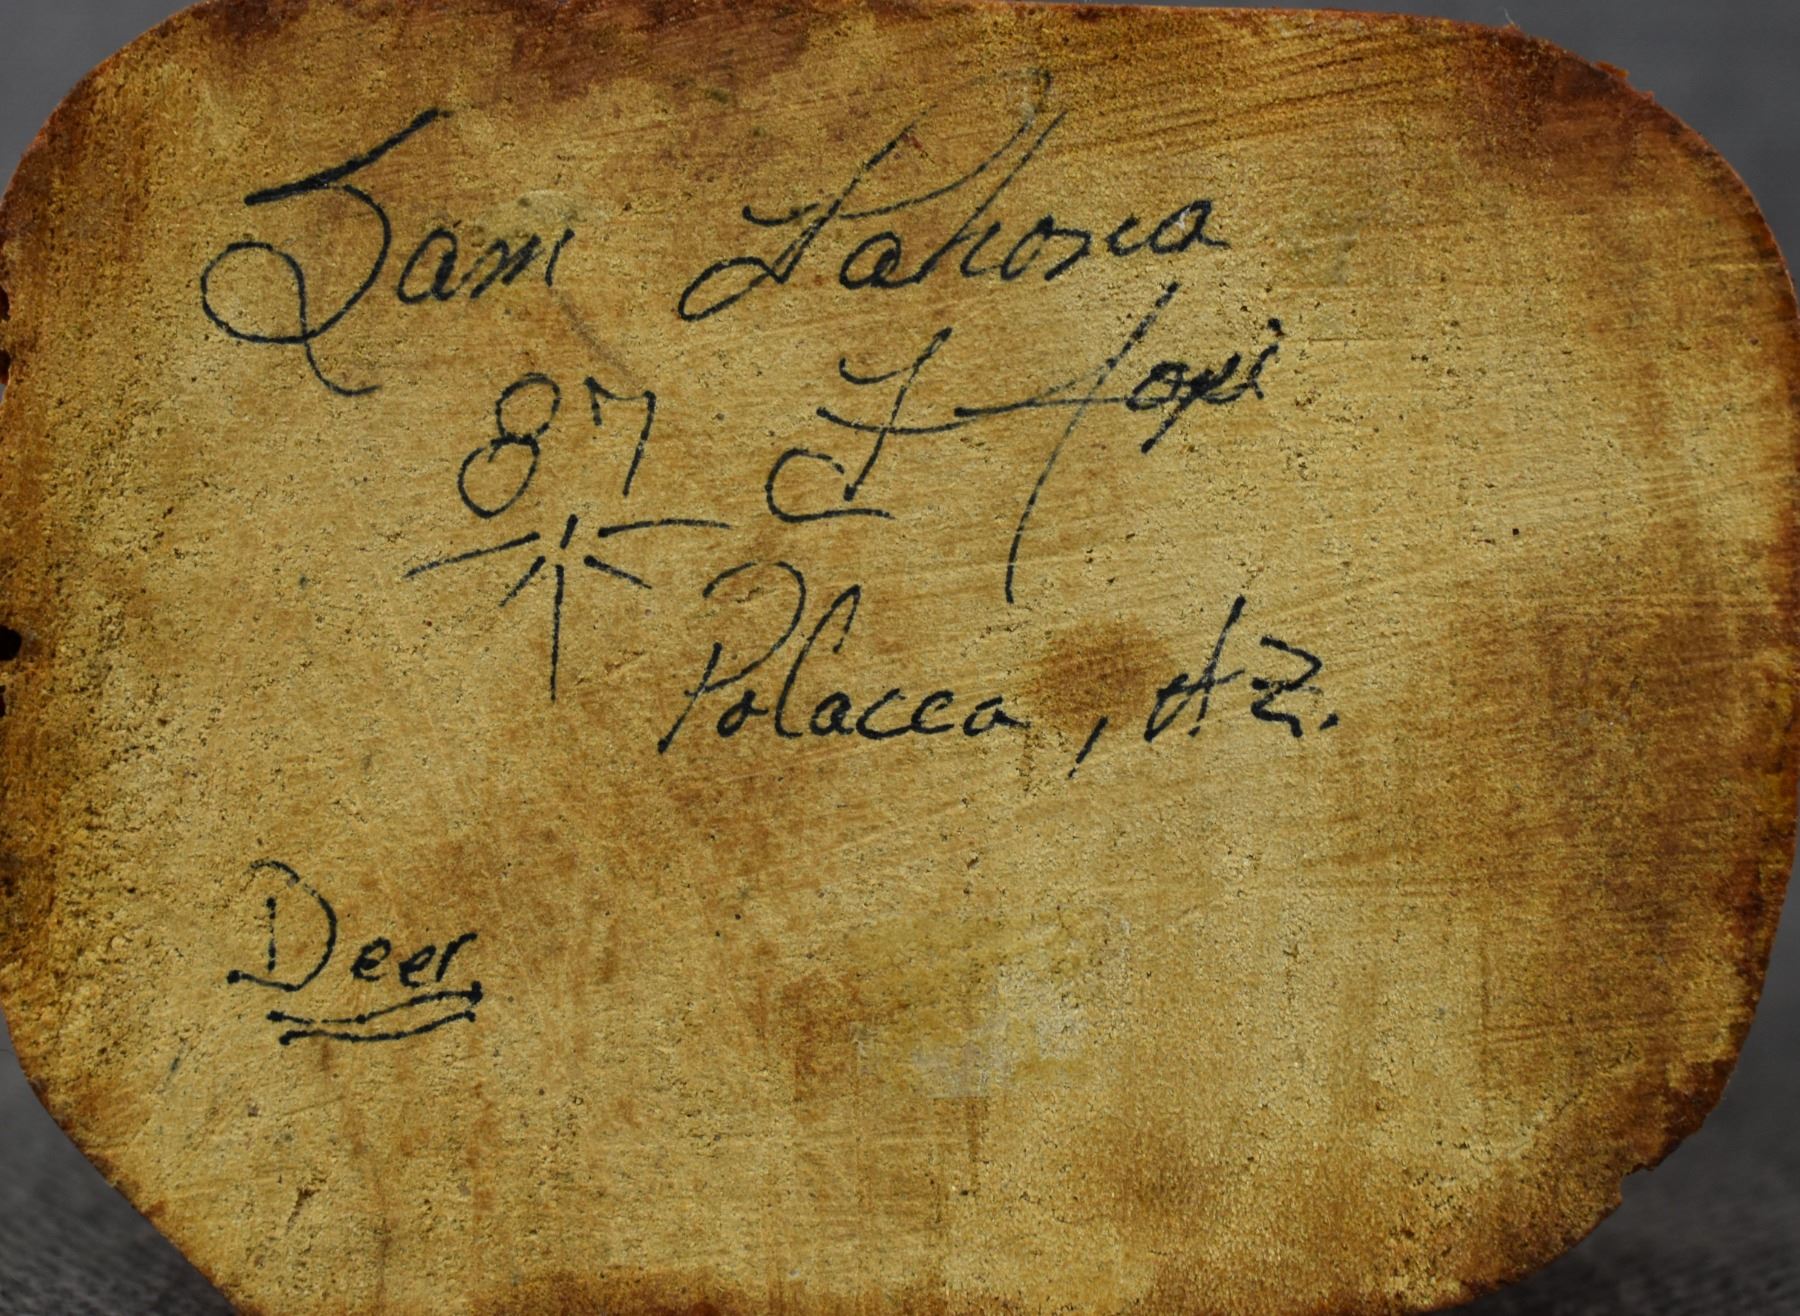 Sam
87 Hopi
Polacca, AZ.
Deer